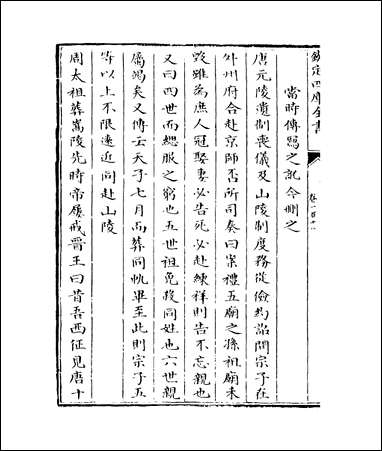 欽定四庫全書
卷一百十一
當時傳踢之訛今刪之
唐元陵遺制喪儀及山陵制度務從儉約詔問宗子在
外州府合赴京師否所司奏曰案禮五廟之孫祖廟未
毀雖為庶人冠娶妻必告死必赴練祥則告不忘親也
又曰四世而緦服之窮也五世袒免殺同姓也六世親
屬竭矣又傳云天子七月而葬同軌畢至此則宗子五
等以上不限遠近同赴山陵
周太祖葬嵩陵先時帝屢戒晉王曰昔吾西征見唐十